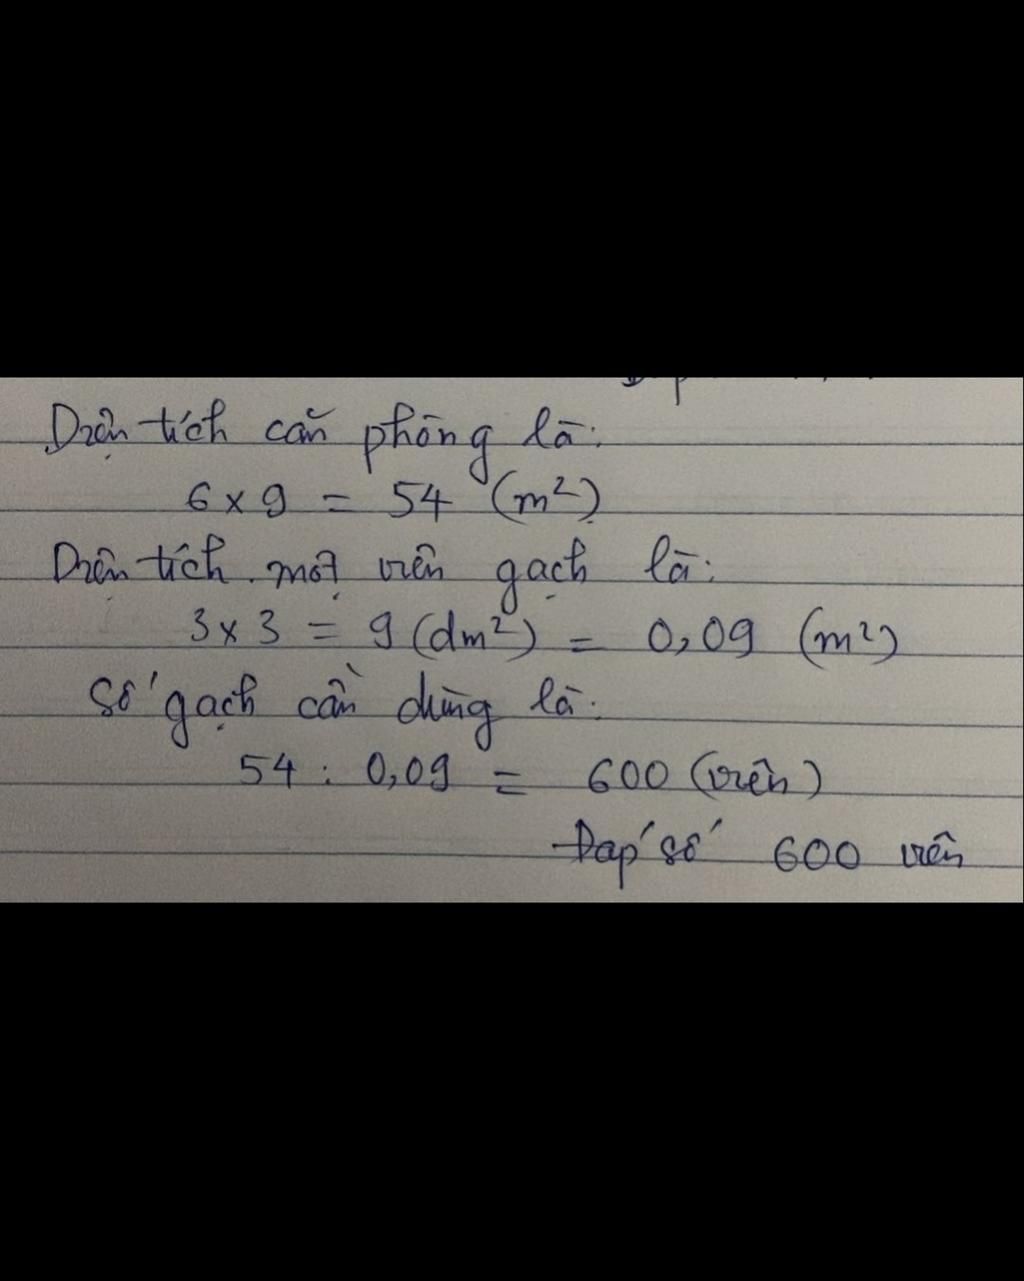 Diện tích căn phòng là:
6 x 9 = 54 (m²)
Diện tích một viên gạch là:
3 x 3 = 9 (dm²) = 0,09 (m²)
Số gạch cần dùng là:
54 : 0,09 = 600 (viên)
Đáp số 600 viên